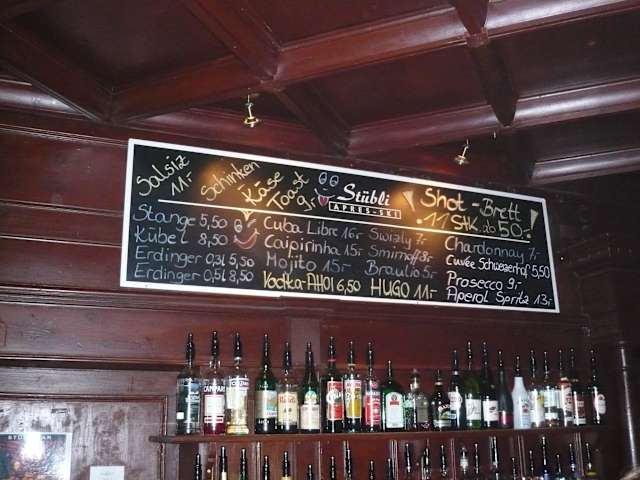 Salsiz
11.-
Schinken
Käse
Toast
9.-
Stübli
APRES-SKI
Shot-Brett
11 Stk. ab 50.-
Stange 5,50
Kübel 8,50
Erdinger 0,3l 5,50
Erdinger 0,5l 8,50
Cuba Libre 16.- Swizly 7.-
Caipirinha 15.- Smirnoff 8.-
Mojito 15.- Braulio 5.-
Vodka-AHOI 6,50 HUGO 11.-
Chardonnay 7.-
Cuvée Schweizerhof 5,50
Prosecco 9.-
Aperol Spritz 13.-
CAMPARI